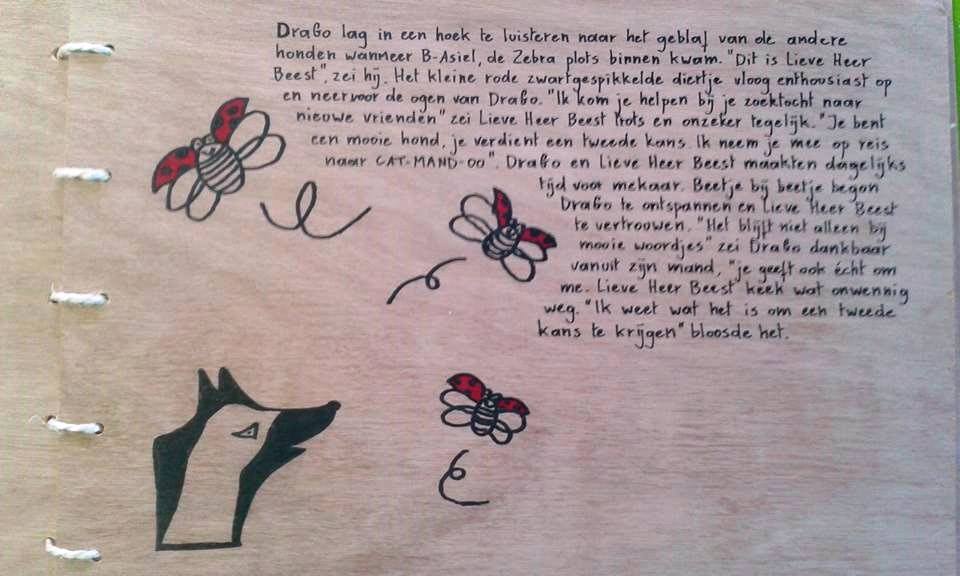 DraGo lag in een hoek te luisteren naar het geblaf van de andere
honden wanneer B-Asiel, de Zebra plots binnen kwam. "Dit is Lieve Heer
Beest", zei hij. Het kleine rode zwartgespikkelde diertje vloog enthousiast op
en neer voor de ogen van DraGo. "Ik kom je helpen bij je zoektocht naar
nieuwe vrienden" zei Lieve Heer Beest trots en onzeker tegelijk. "Je bent
een mooie hond, je verdient een tweede kans. Ik neem je mee op reis
naar CAT-MAND-OO". DraGo en Lieve Heer Beest maakten dagelijks
tijd voor mekaar. Beetje bij beetje begon
DraGo te ontspannen en Lieve Heer Beest
te vertrouwen. "Het blijft niet alleen bij
mooie woordjes" zei DraGo dankbaar
vanuit zijn mand, "je geeft ook écht om
me. Lieve Heer Beest keek wat onwennig
weg. "Ik weet wat het is om een tweede
kans te krijgen" bloosde het.